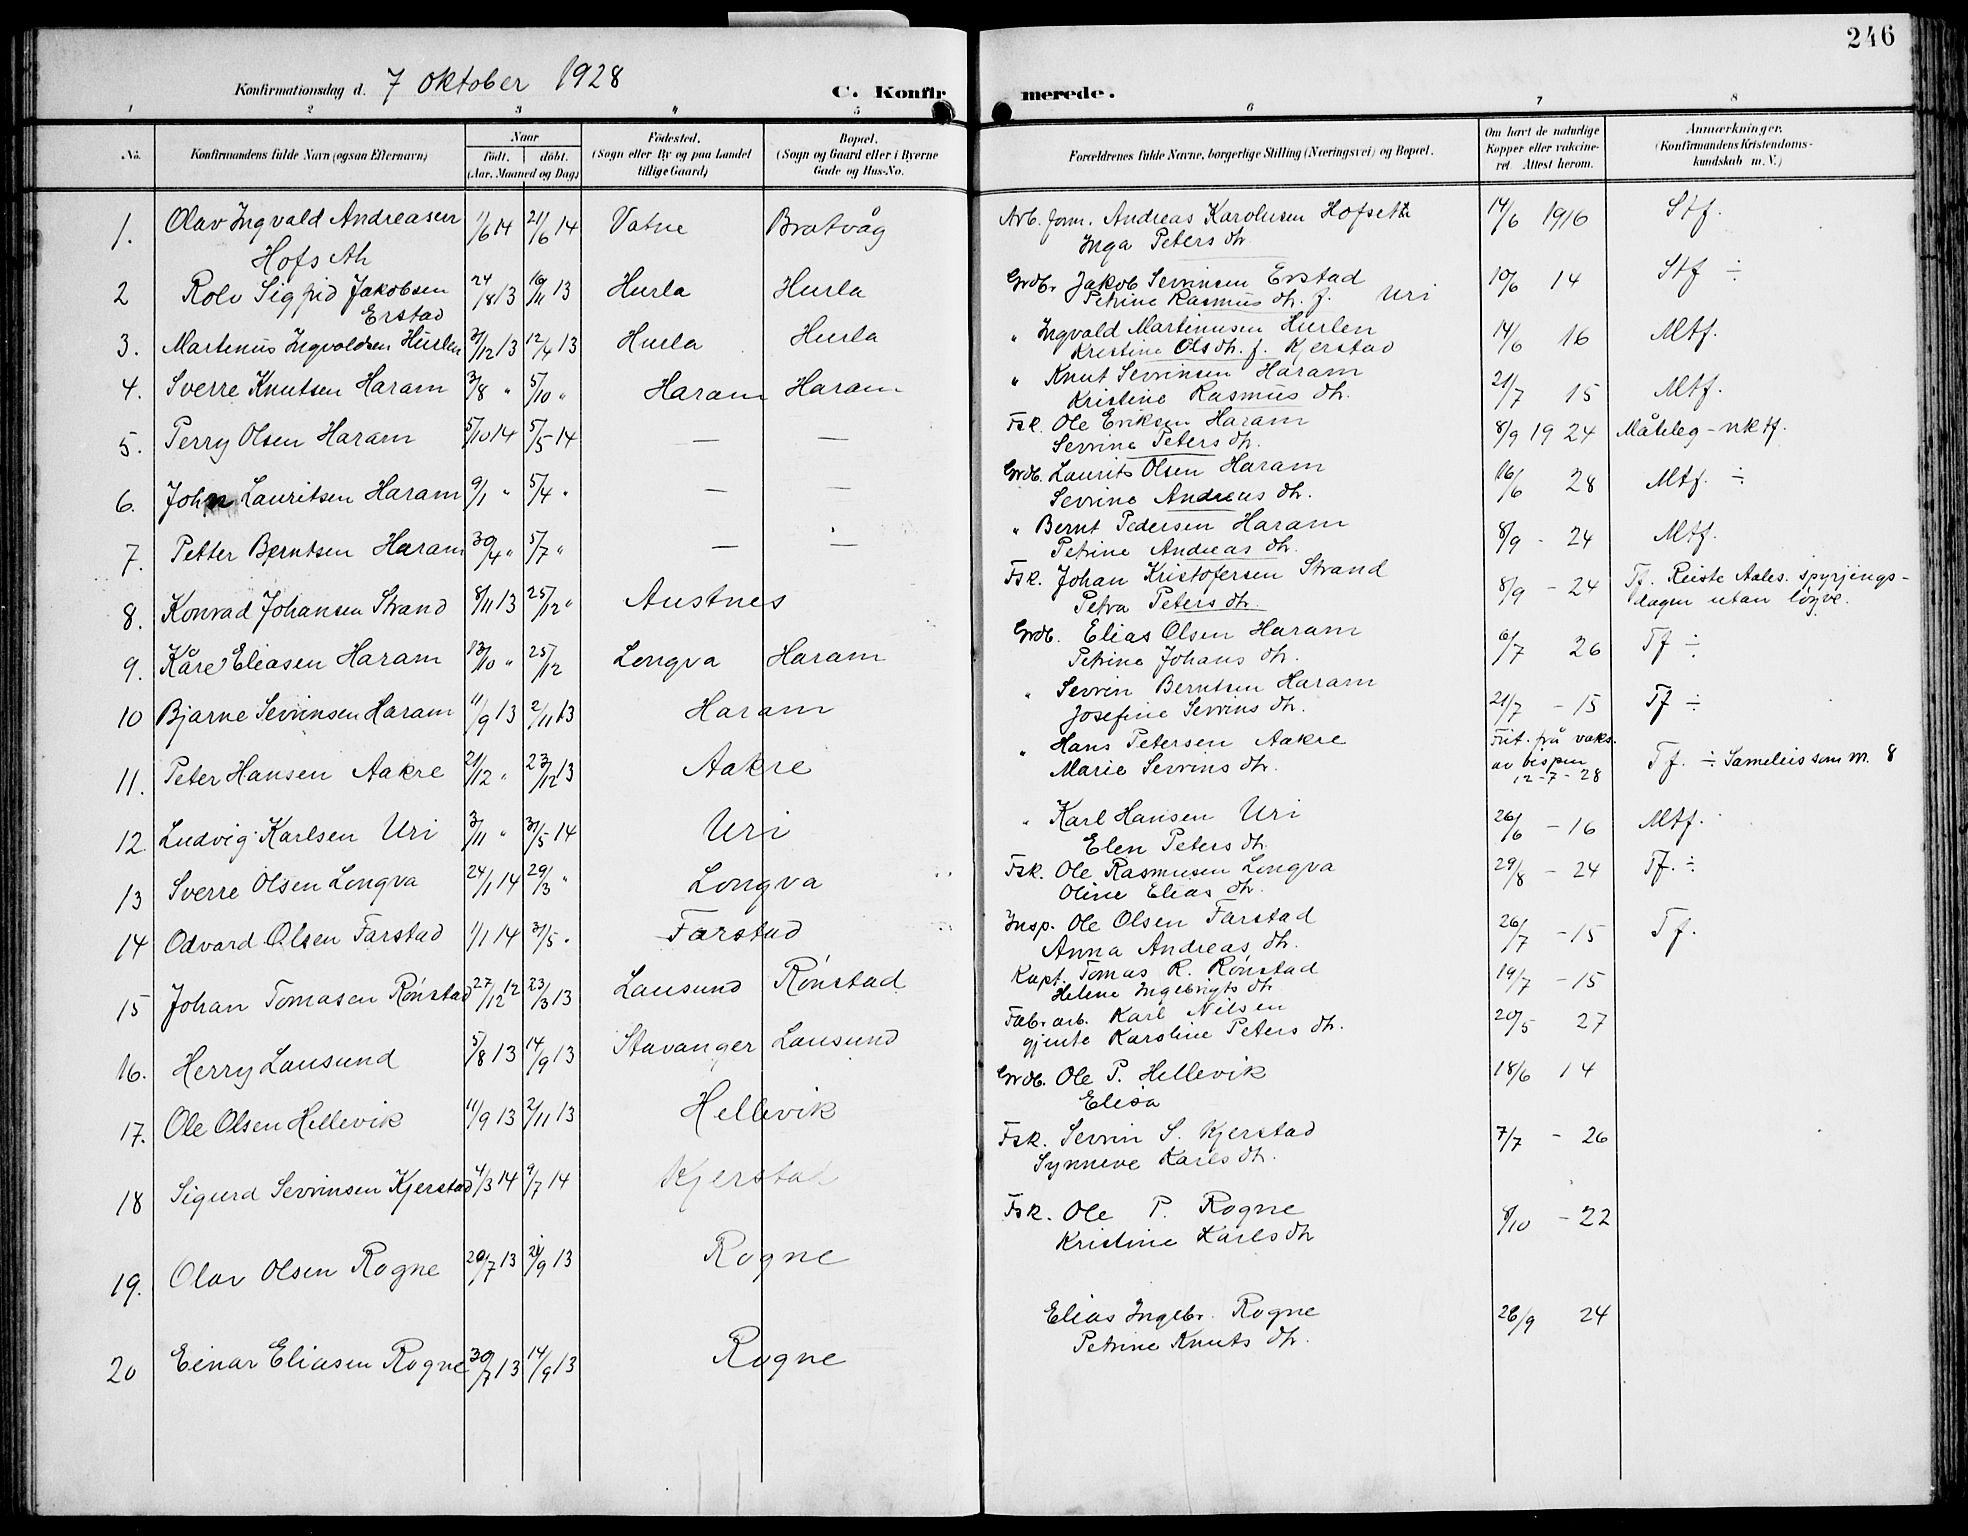 246
Konfirmationsdag d. 7 oktober 1928
C. Konfirmerede.
1 2 3 4 5 6 7 8
No. Konfirmandens fulde Navn (ogsaa Efternavn) Naar født. døbt. (Aar, Maaned og Dag) Fødested. (Sogn eller By og paa Landet tillige Gaard) Bopæl. (Sogn og Gaard eller i Byerne Gade og Hus-No. Forældrenes fulde Navne, borgerlige Stilling (Næringsvei) og Bopæl. Om havt de naturlige Kopper eller vaccineret Attest herom. Anmærkninger. (Konfirmandens Kristendomskundskab m. V.)
1. Olav Ingvald Andreasen 1/6 14 21/6 14 Vatne Bratvåg Arb. form. Andreas Karolusen Hofseth 14/6 1916 Stf.
Hofseth Inga Peters dtr.
2 Rolv Sigfrid Jakobsen 24/8 13 16/11 13 Hurla Hurla Grdb. Jakob Sevrinsen Erstad 10/6 14 Stf ÷
Erstad Petrine Rasmus dtr. f. Uri
3. Martinus Ingvaldsen Hurlen 31/12 13 12/4 13 Hurla Hurla " Ingvald Martinusen Hurlen 14/6 16 Mtf.
Kristine Ols dtr. f. Kjerstad
4. Sverre Knutsen Haram 3/8 " 5/10 " Haram Haram " Knut Sevrinsen Haram 21/7 15 Mtf.
Kristine Rasmus dtr.
5. Perry Olsen Haram 5/10 14 5/5 14 — — Fsk. Ole Eriksen Haram 8/9 19 24 Måteleg - nktf.
Sevrine Peters dtr.
6. John Lauritsen Haram 9/1 " 5/4 " — — Grdb. Laurits Olsen Haram 16/6 28 Mtf. ÷
Sevrine Andreas dtr.
7. Petter Berntsen Haram 30/4 " 5/7 " — — " Bernt Pedersen Haram 8/9 - 24 Mtf.
Petrine Andreas dtr.
8. Konrad Johansen Strand 8/11 13 25/12 " Austnes Fsk. Johan Kristofersen Strand 8/9 - 24 Tf. Reiste Aales. spyrjings-
Petra Peters dtr. dagen utan løyve.
9. Kåre Eliasen Haram 13/10 " 25/12 Longva Haram Grdb. Elias Olsen Haram 6/7 26 Tf ÷
Petrine Johans dtr.
10 Bjarne Sevrinsen Haram 11/9 13 2/11 13 Haram " Sevrin Berntsen Haram 21/7 - 15 Tf ÷
Josefine Sevrins dtr.
11. Peter Hansen Aakre 21/12 " 23/12 13 Aakre " Hans Petersen Aakre Frit. frå vaks. Tf. ÷ Sameleis som nr. 8
Marie Sevrins dtr. av bispen
12-7-28
12 Ludvig Karlsen Uri 3/11 " 31/5 14 Uri " Karl Hansen Uri 26/6 - 16 Mtf.
Elen Peters dtr.
13 Sverre Olsen Longva 24/1 14 29/3 " Longva Fsk. Ole Rasmusen Longva 29/8 - 24 Tf. ÷
Oline Elias dtr.
14 Odvard Olsen Farstad 1/1 14 31/5 " Farstad Insp. Ole Olsen Farstad 26/7 - 15 Tf.
Anna Andreas dtr.
15 Johan Tomasen Rønstad 27/12 12 23/3 13 Lausund Rønstad Kapt. Tomas R. Rønstad 19/7 - 15
Helene Ingebrigts dtr.
16. Herry Lausund 5/8 13 14/9 13 Stavanger Lausund Fabr. arb. Karl Nilsen 20/5 27
gjente Karoline Peters dtr.
17. Ole Olsen Hellevik 11/9 13 2/11 13 Hellevik Grdb. Ole P. Hellevik 18/6 14
Elisa
18 Sigurd Sevrinsen Kjerstad 4/3 14 9/7 14 Kjerstad Fsk. Sevrin S. Kjerstad 7/7 - 26
Synneve Karls dtr.
19. Olav Olsen Rogne 20/7 13 21/9 13 Rogne Fsk. Ole P. Rogne 8/10 - 22
Kristine Karls dtr
20 Einar Eliasen Rogne 30/7 13 14/9 13 Rogne Elias Ingebr. Rogne 26/9 24
Petrine Knuts dtr.